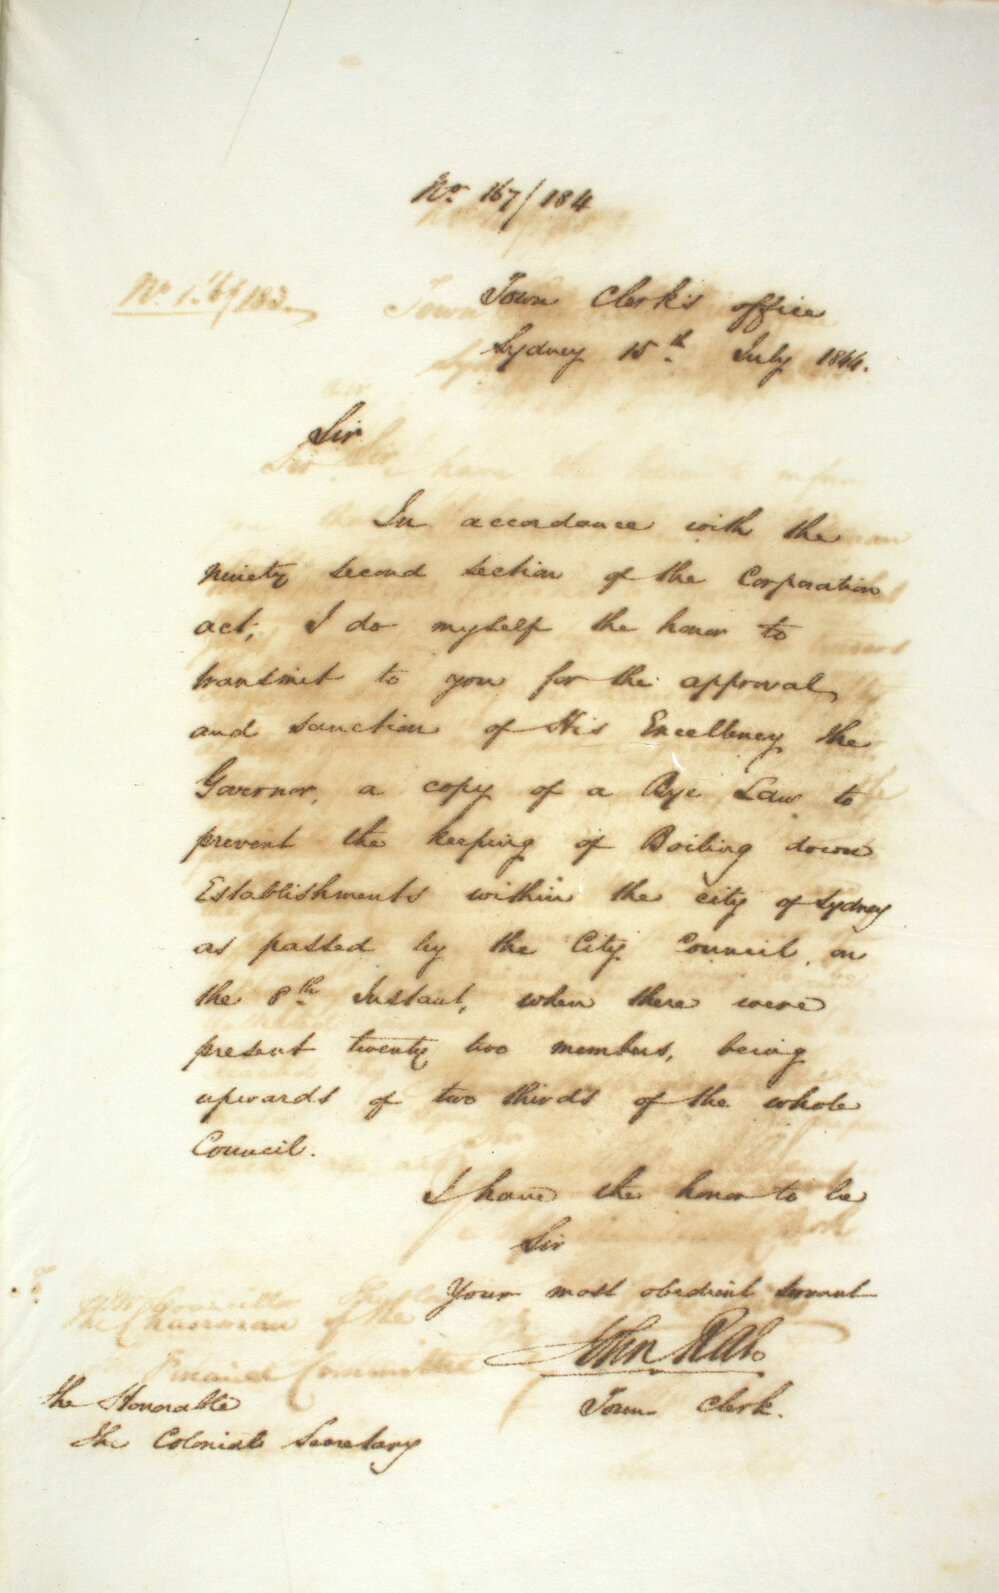 No. 167/184
Town Clerk's office
Sydney 15th July 1844.
Sir
In accordance with the
ninety second section of the Corporation
act, I do myself the honor to
transmit to you for the approval
and sanction of His Excellency the
Governor, a copy of a Bye Law to
prevent the keeping of Boiling down
Establishments within the city of Sydney
as passed by the City Council, on
the 8th Instant, when there were
present twenty two members, being
upwards of two thirds of the whole
Council.
I have the honor to be
Sir
Your most obedient servant
John Rae
Town Clerk.
The Honorable
The Colonial Secretary